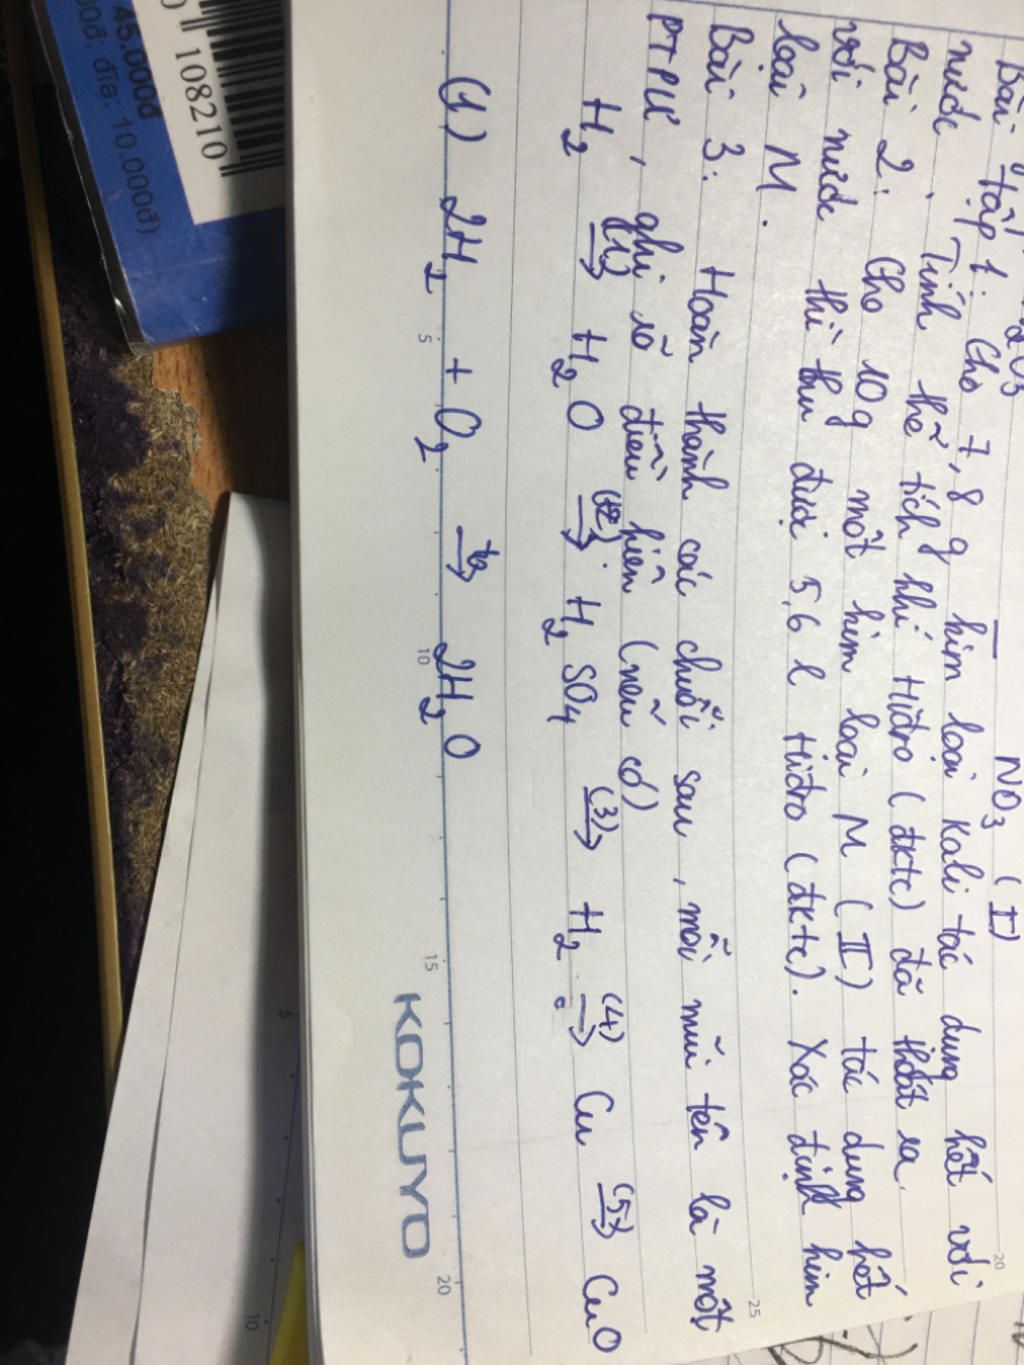 NO3 (I)
Bài tập 1: Cho 7,8 g kim loại Kali tác dụng hết với
nước. Tính thể tích khí Hiđro (đktc) đã thoát ra.
Bài 2: Cho 10g một kim loại M (II) tác dụng hết
với nước thì thu được 5,6 l Hiđro (đktc). Xác định kim
loại M.
Bài 3: Hoàn thành các chuỗi sau, mỗi mũi tên là một
PTPƯ, ghi rõ điều kiện (nếu có)
H2 (1)→ H2O (2)→ H2SO4 (3)→ H2 (4)→ Cu (5)→ CuO
(1) 2H2 + O2 to→ 2H2O
5 10 15 20
KOKUYO
20
25
45.000đ
00đ; đĩa: 10.000đ)
108210
5
10